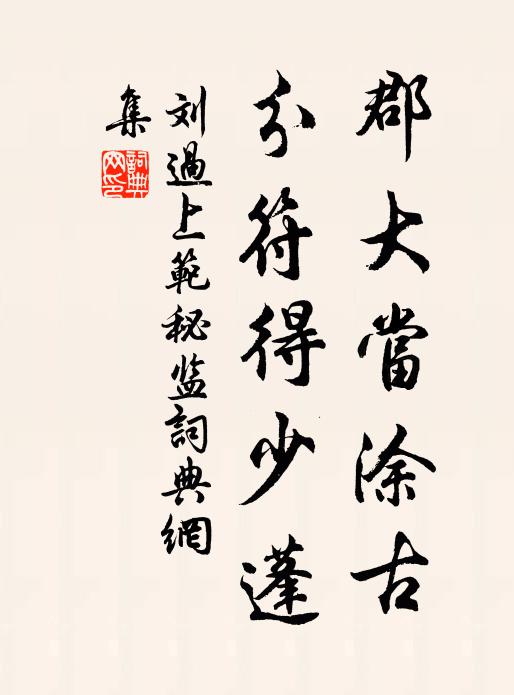 郡大當涂古
分符得少蓬
刘過上範秘监詞典網
集
詞典网印